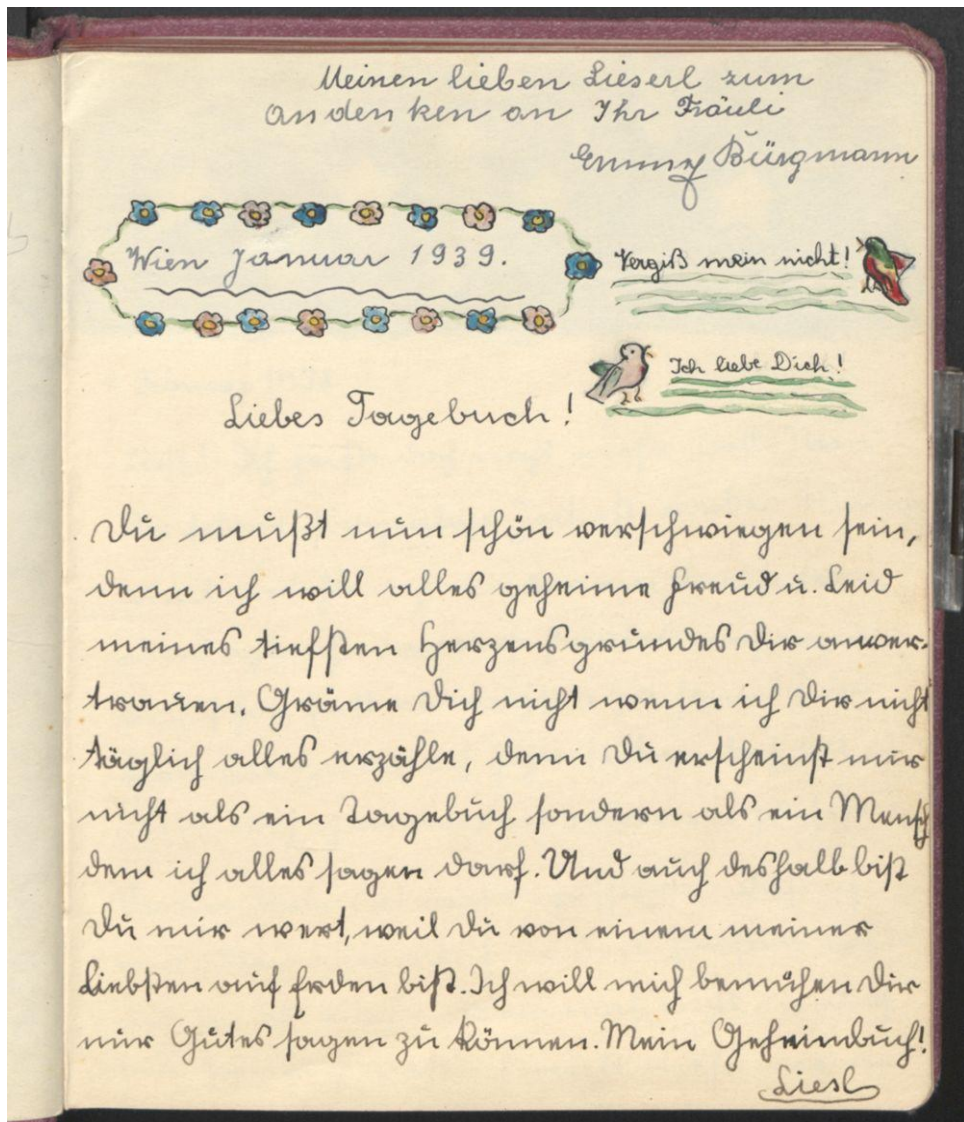 Meinen lieben Lieserl zum
Andenken an Ihr Fräuli
Emmy Bürgmann
Wien Januar 1939.
Vergiß mein nicht!
Ich liebe Dich!
Liebes Tagebuch!
Du mußt nun schön verschwiegen sein,
denn ich will alles geheime Freud u. Leid
meines tiefsten Herzensgrundes Dir anver-
trauen. Gräme Dich nicht wenn ich Dir nicht
täglich alles erzähle, denn Du erscheinst mir
nicht als ein Tagebuch sondern als ein Mensch
dem ich alles sagen darf. Und auch deshalb bist
Du mir wert, weil Du von einem meiner
Liebsten auf Erden bist. Ich will mich bemühen Dir
nur Gutes sagen zu können. Mein Geheimbuch!
Liesl